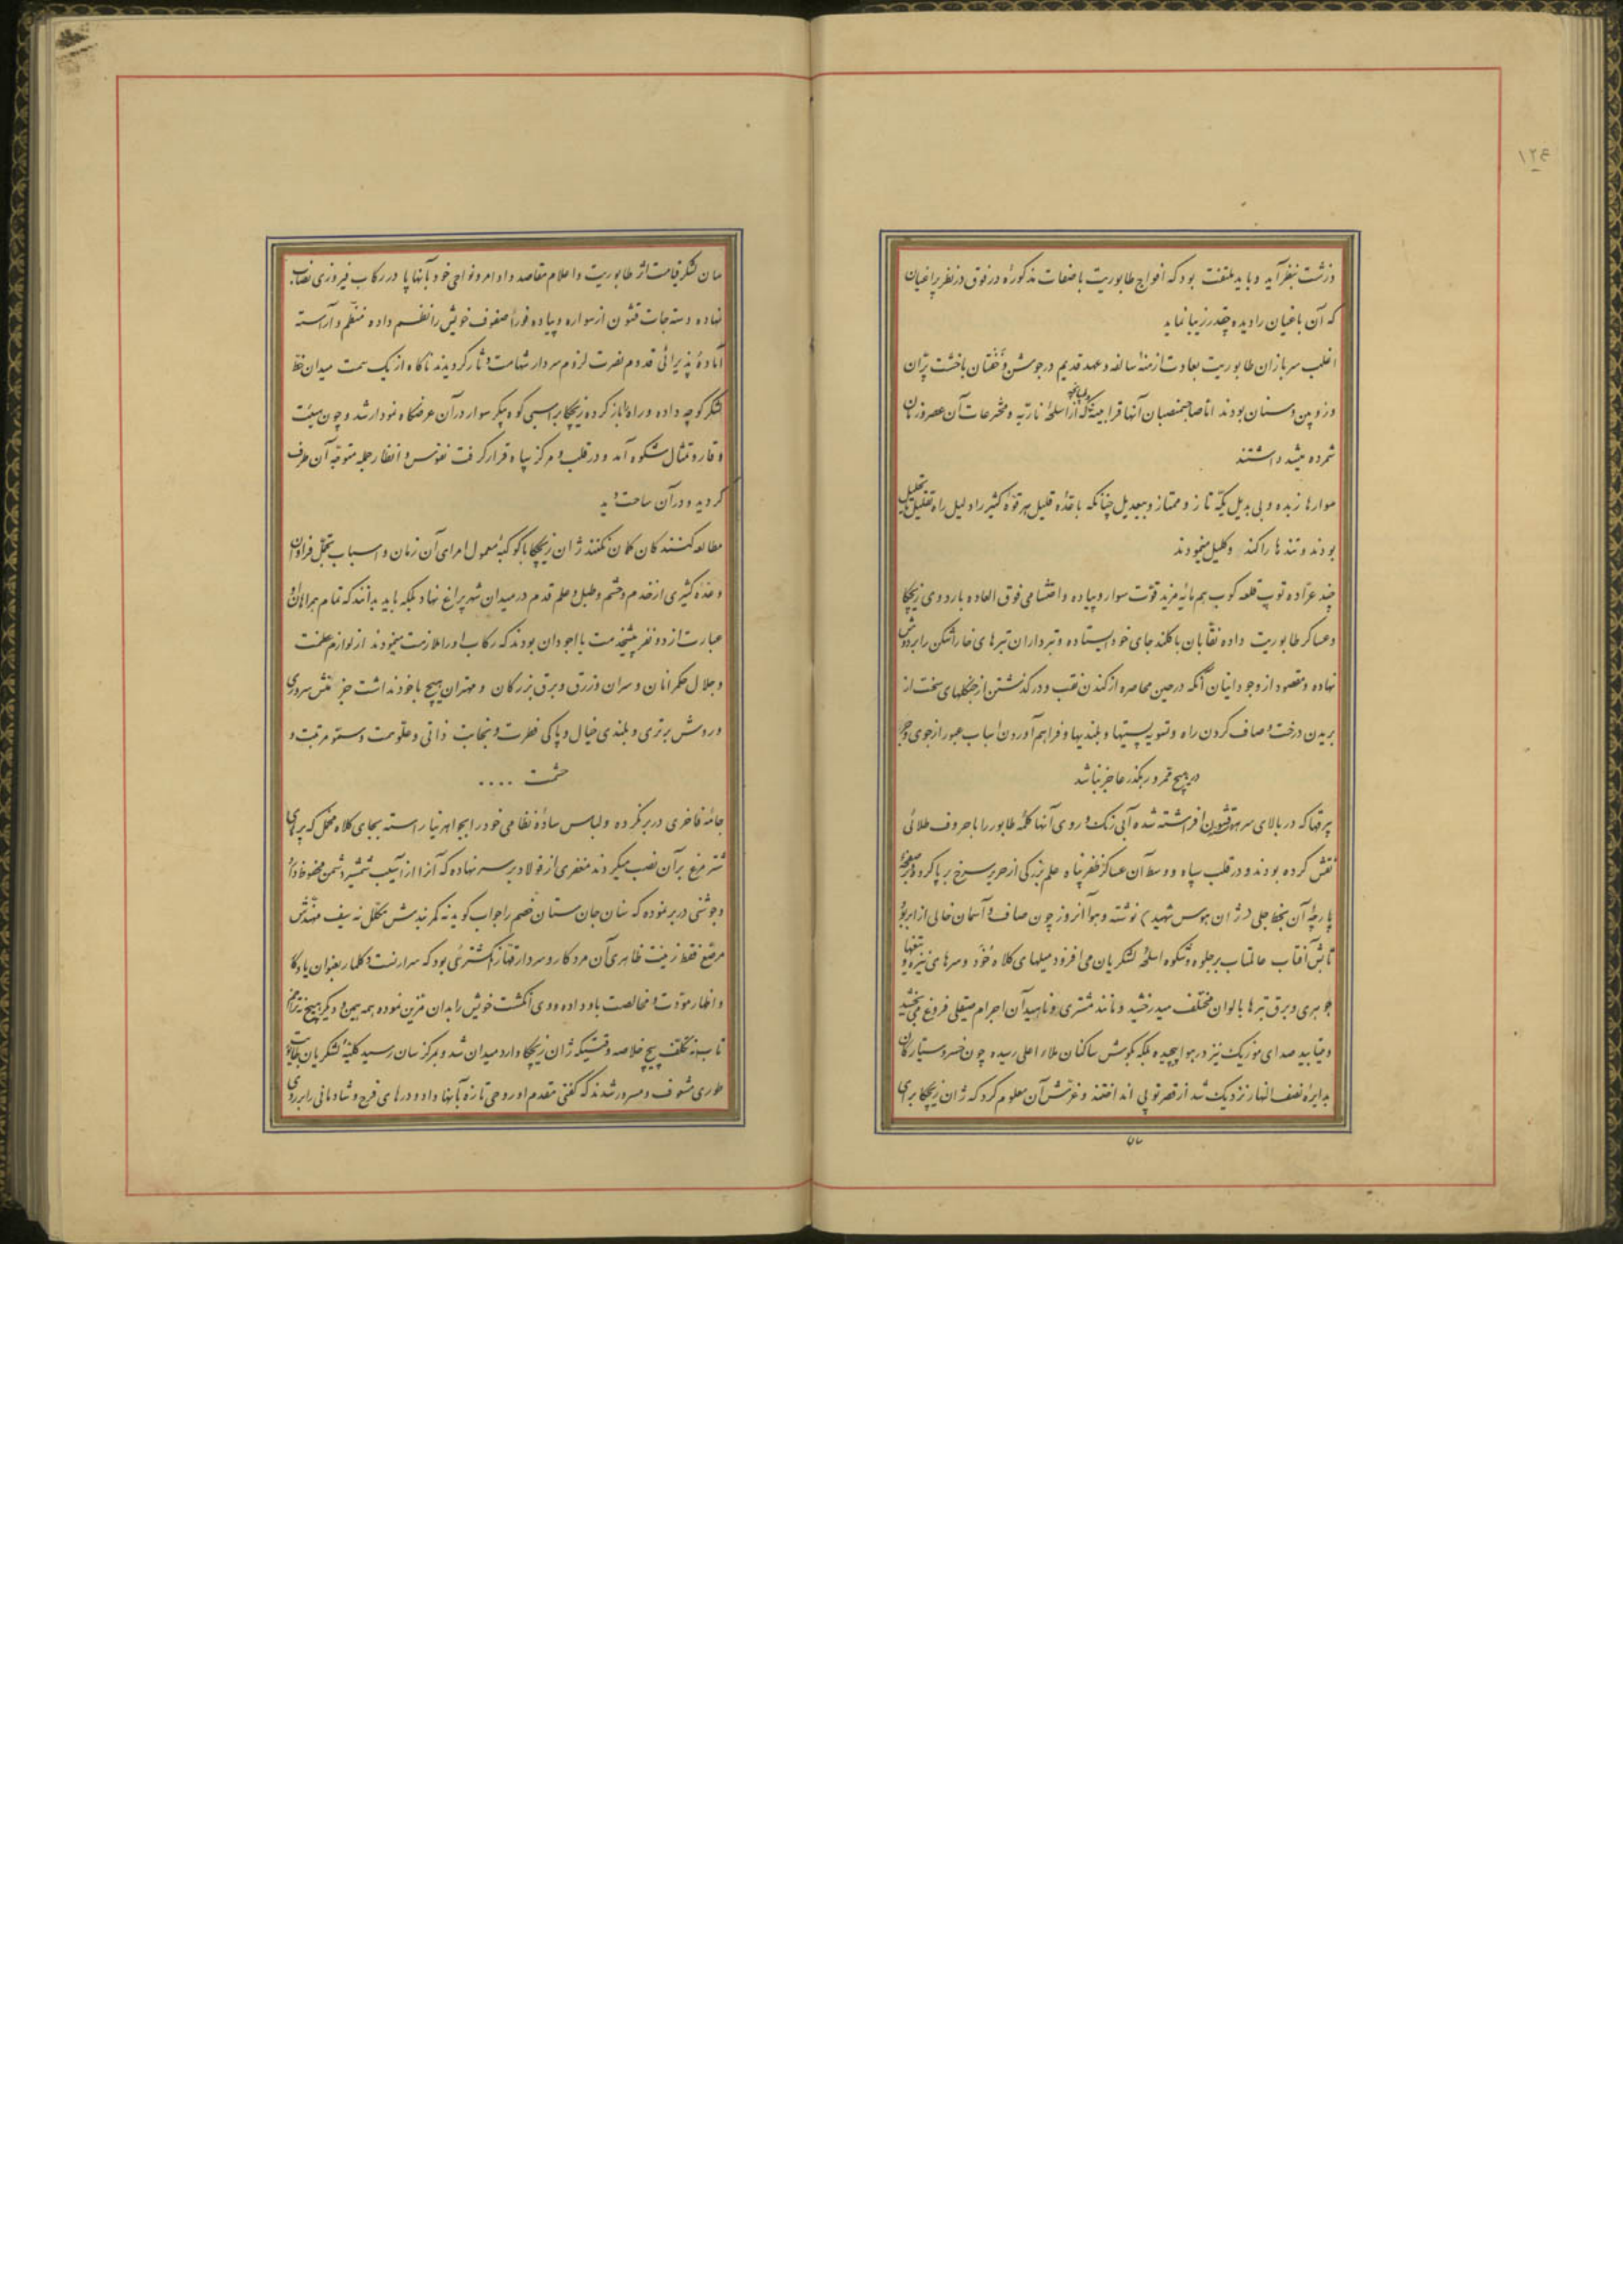 ۱۲۴
وزشت بنظر آید و باید ملتفت بود که افواج طابوریت با صفات مذکوره در فوق در نظر یراغیان
که آن باغیان را دیده چقدر زیبا نماید
اغلب سربازان طابوریت بعادت ازمنه سالفه و عهد قدیم در جوشن و خفتان با خشت پرّان
و زوبین و سنان بودند اما صاحبمنصبان آنها قرابینه که از اسلحه ناریّه و مخترعات آن عصر و زمان
شمرده میشد داشتند
سوارها زبده و بی بدیل یکّه تاز و ممتاز و بیعدیل چنانکه با عدّه قلیل هر قوّه کثیر را دلیل راه تقلیل
بودند و تندها را کند و کلیل مینمودند
چند عرّاده توپ قلعه کوب هم مایه مزید قوّت سوار و پیاده و احتشامی فوق العاده باردوی زیچکا
و عساکر طابوریت داده نقّابان با کلند جای خود ایستاده و تبرداران تبرهای خاراشکن را بر دوش
نهاده و مقصود از وجود اینان آنکه در حین محاصره از کندن نقب و در گذشتن از جنگلهای سخت از
بریدن درخت و صاف کردن راه و تسویه پستیها و بلندیها و فراهم آوردن اسباب عبور از جوی و جر
در هیچ ممر و رهگذر عاجز نباشد
بیرقها که در بالای سر هر قشون افراشته شده آبی رنگ و روی آنها کلمه طابور را با حروف طلائی
نقش کرده بودند و در قلب سپاه و وسط آن عساکر ظفر پناه علم بزرگی از حریر سرخ بر پا کرده
پارچه آن بخط جلی (ژان هوس شهید) نوشته و هوا آنروز چون صاف و آسمان خالی از ابر بود
تابش آفتاب عالمتاب بر جلوه و شکوه اسلحه لشکریان می افزود میلهای کلاه خُود و سرهای نیزه و تیغها
جوهری و برق تبرها بالوان مختلف میدرخشید و مانند مشتری و ناهید آن اجرام صیقلی فروغ می بخشید
و میتابید صدای موزیک نیز در هوا پیچیده بلکه بگوش ساکنان ملاء اعلی رسیده چون خسرو سیارگان
بدایره نصف النهار نزدیک شد از قصر توپی انداختند و غرّش آن معلوم کرد که ژان زیچکا برای
سان
سان لشکر قیامت اثر طابوریت و اعلام مقاصد و اوامر و نواهی خود بآنها پا در رکاب فیروزی نصاب
نهاده دسته جات قشون از سواره و پیاده فوراً صفوف خویش را نظم داده منظّم و آراسته
آماده پذیرائی قدوم نصرت لزوم سردار شهامت دثار گردیدند ناگاه از یک سمت میدان خطّ
لشکر کوچه داده و راه باز کرده زیچکا بر اسبی کوه پیکر سوار در آن عرضگاه نمودار شد و چون هیئت
وقار و تمثال شکوه آمد و در قلب و مرکز سپاه قرار گرفت نفوس و انظار جمله متوجّه آن طرف
گردید و در آن ساحت دید
مطالعه کنندگان گمان نکنند ژان زیچکا با کوکبه معمول امرای آن زمان و اسباب تجمّل فراوان
و عدّه کثیری از خدم و حشم و طبل و علم قدم در میدان شهر پراغ نهاد بلکه باید بدانند که تمام همراهان او
عبارت از دو نفر پیشخدمت با آجودان بودند که رکاب او را ملازمت مینمودند از لوازم عظمت
و جلال حکمرانان و سران و زرق و برق بزرگان و مهتران هیچ با خود نداشت جز منش سروری
و روش برتری و بلندی خیال و پاکی فطرت و نجابت ذاتی و علوّ همت و سموّ مرتبت و
حشمت ....
جامه فاخری در بر نکرده و لباس ساده نظامی خود را بجواهر نیاراسته بجای کلاه مخمل که پرهای
شتر مرغ بر آن نصب میکردند مغفری از فولاد بر سر نهاده که آنرا از آسیب شمشیر دشمن محفوظ دارد
و جوشنی در بر نموده که سنان جان ستان خصم را جواب گوید نه کمربندش مکلّل نه سیف مهنّدش
مرصّع فقط زینت ظاهری آن مرد کار و سردار قهّار انگشتری بود که سرارنست دکلمار بعنوان یادگار
و اظهار مودّت و مخالصت باو داده و وی انگشت خویش را بدان مزین نموده همه همین و دیگر هیچ
خلاصه وقتیکه ژان زیچکا وارد میدان شد و بمرکز سان رسید کلیه لشکریان طابوریت
طوری مشعوف و مسرور شدند که گفتی مقدم او روحی تازه بآنها داد و درهای فرح و شادمانی را بر روی